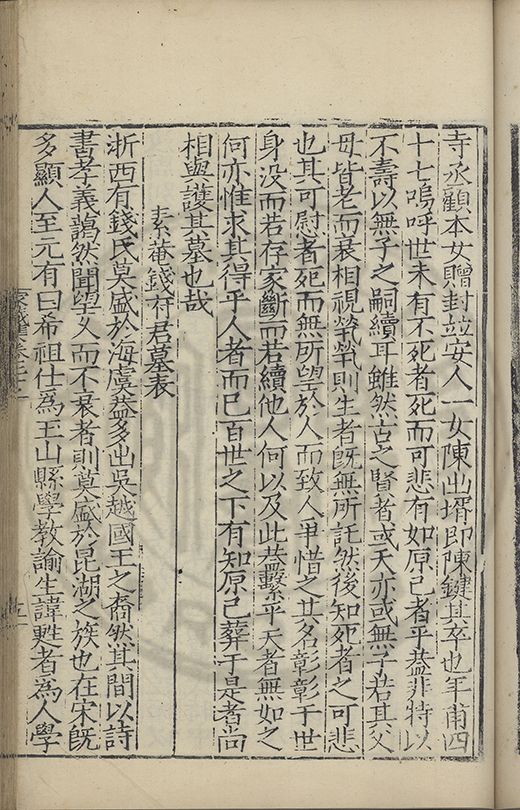 寺丞顧本女贈封並安人一女陳出壻即陳鍵其卒也年甫四
十七嗚呼世未有不死者死而可悲有如原已者乎葢非特以
不壽以無子之嗣續耳雖然古之賢者或夭亦或無子若其父
母皆老而衰相視煢煢則生者旣無所託然後知死者之可悲
也其可慰者死而無所望於人而致人爭惜之其名彰彰于世
身没而若存家斷而若續他人何以及此葢繫乎天者無如之
何亦惟求其得乎人者而已百世之下有知原已葬于是者尚
相與護其墓也哉
素菴錢府君墓表
浙西有錢氏莫盛於海虞葢多出吳越國王之裔然其間以詩
書孝義藹然聞望久而不衰者則莫盛於昆湖之族也在宋旣
多顯人至元有曰希祖仕為玉山縣學教諭生諱甦者為人學